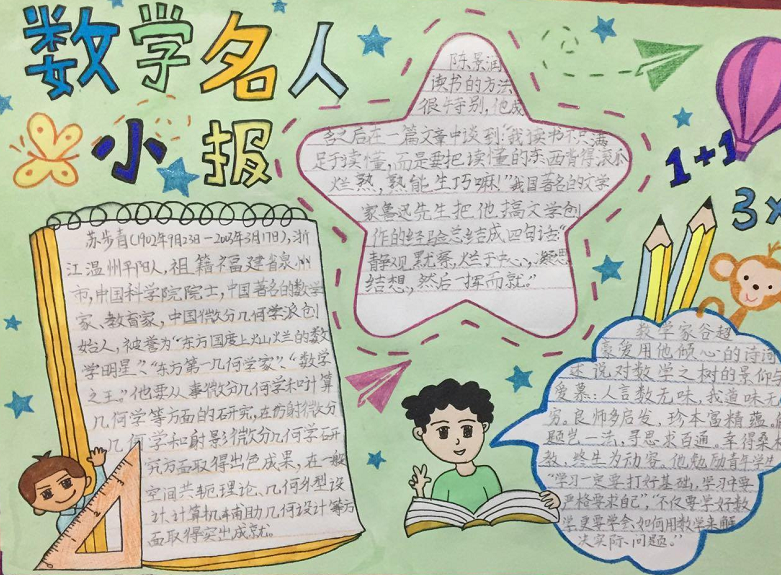 数学名人
小报
苏步青(1902年9月23日—2003年3月17日),浙
江温州平阳人,祖籍福建省泉州
市,中国科学院院士,中国著名的数学
家、教育家,中国微分几何学派创
始人,被誉为“东方国度上灿烂的数
学明星”、“东方第一几何学家”、“数学
之王”他要从事微分几何学和计算
几何学等方面的研究,在仿射微分
几何学和射影微分几何学研
究方面取得出色成果,在一般
空间共轭理论、几何外型设
计、计算机辅助几何设计等方
面取得突出成就。
陈景润
读书的方法
很特别,他成
名之后在一篇文章中谈到“我读书不只满
足于读懂,而是要把读懂的东西背得滚瓜
烂熟,熟能生巧嘛!”我国著名的文学
家鲁迅先生把他搞文学创
作的经验总结成四句话:“
静观默察,烂于心,凝思
结想,然后一挥而就。”
1+1
3×
数学家谷超
豪爱用他倾心的诗词
述说对数学之树的景仰与
爱慕:人言数无味,我道味无
穷。良师多启发,珍本富精蕴。
题岂一法,寻思求百通。幸得桑
数,终生为动容。他勉励青年学生
“学习一定要打好基础,学习中要
严格要求自己”,“不仅要学好数
学,更要学会如何用数学来解
决实际问题。”